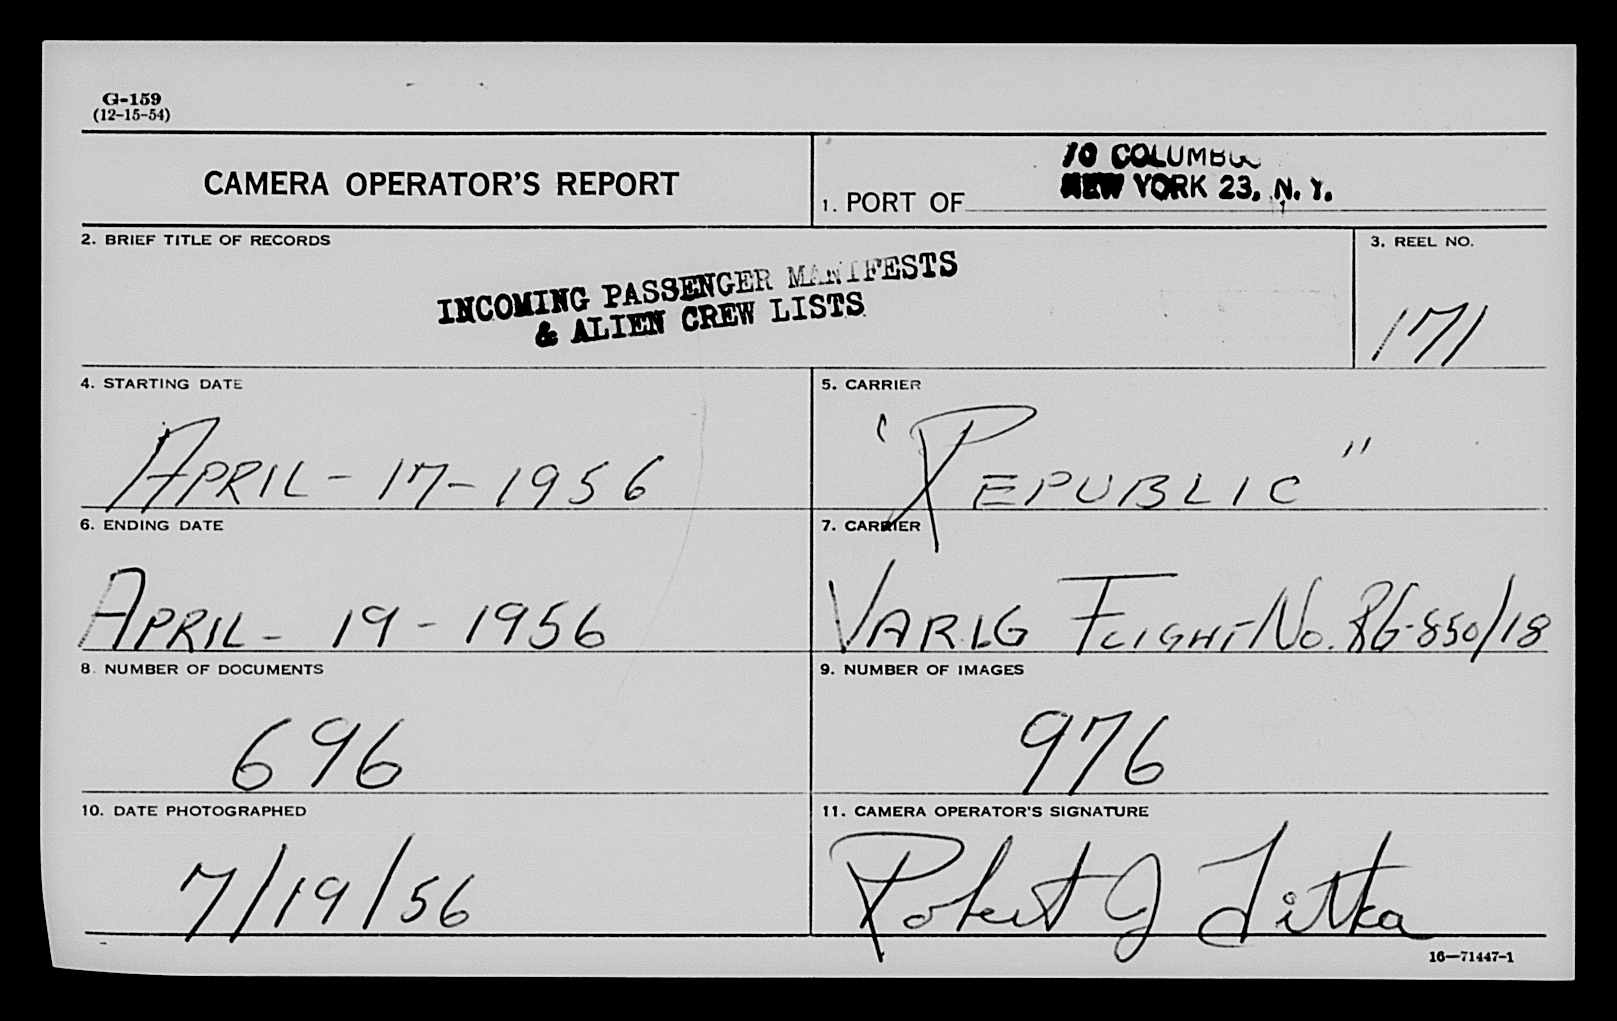 G-159
(12-15-54)
CAMERA OPERATOR'S REPORT
1. PORT OF
70 COLUMBUS
NEW YORK 23, N. Y.
2. BRIEF TITLE OF RECORDS
INCOMING PASSENGER MANIFESTS
& ALIEN CREW LISTS
3. REEL NO.
171
4. STARTING DATE
APRIL - 17 - 1956
5. CARRIER
"REPUBLIC"
6. ENDING DATE
APRIL - 19 - 1956
7. CARRIER
VARIG FLIGHT No. RG-850/18
8. NUMBER OF DOCUMENTS
696
9. NUMBER OF IMAGES
976
10. DATE PHOTOGRAPHED
7/19/56
11. CAMERA OPERATOR'S SIGNATURE
Robert J
16—71447-1